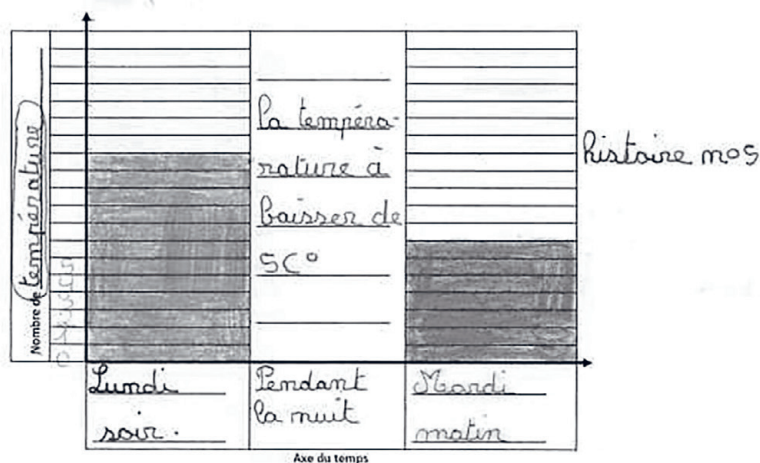 Nombre de température
la tempéra-
rature à
baisser de
5C°
histoire n°5
Lundi
soir.
Pendant
la nuit
Mardi
matin
Axe du temps